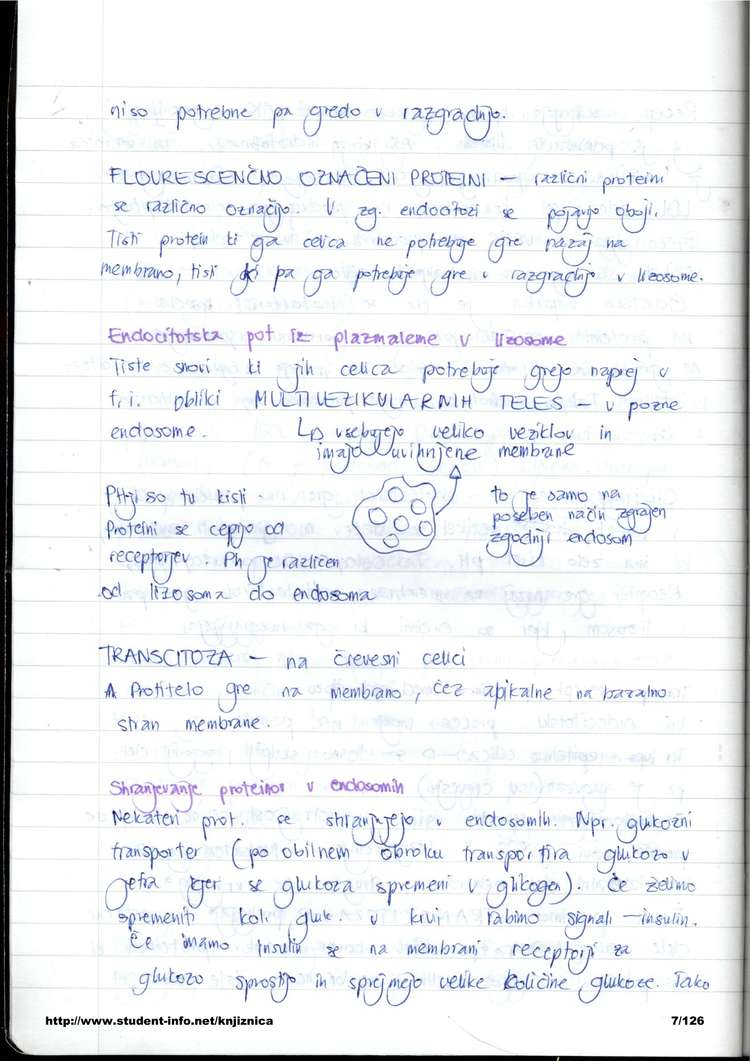 niso potrebne pa gredo v razgradnjo.
FLOURESCENČNO OZNAČENI PROTEINI – različni proteini
se različno označijo. V zg. endocitozi se pojavijo oboji.
Tisti protein ki ga celica ne potrebuje gre nazaj na
membrano, tisti ki pa ga potrebuje gre v razgradnjo v lizosome.
Endocitotska pot iz plazmaleme v lizosome
Tiste snovi ki jih celica potrebuje grejo naprej v
t.i. obliki MULTIVEZIKULARNIH TELES – v pozne
endosome.
vsebujejo veliko veziklov in
imajo uvihnjene membrane
PHji so tu kisli.
Proteini se cepijo od
receptorjev. Ph je različen
od lizosoma do endosoma
to je samo na
poseben način zgrajen
zgodnji endosom
TRANSCITOZA – na črevesni celici
Protitelo gre na membrano, čez apikalne na bazalno
stran membrane.
Shranjevanje proteinov v endosomih
Nekateri prot. se shranjujejo v endosomih. Npr. glukozni
transporter (po obilnem obroku transportira glukozo v
jetra kjer se glukoza spremeni v glikogen). Če želimo
spremeniti kol. gluk. v krvi rabimo signal – insulin.
Če imamo insulin se na membrani receptorji za
glukozo sprostijo in sprejmejo velike količine glukoze. Tako
http://www.student-info.net/knjiznica
7/126